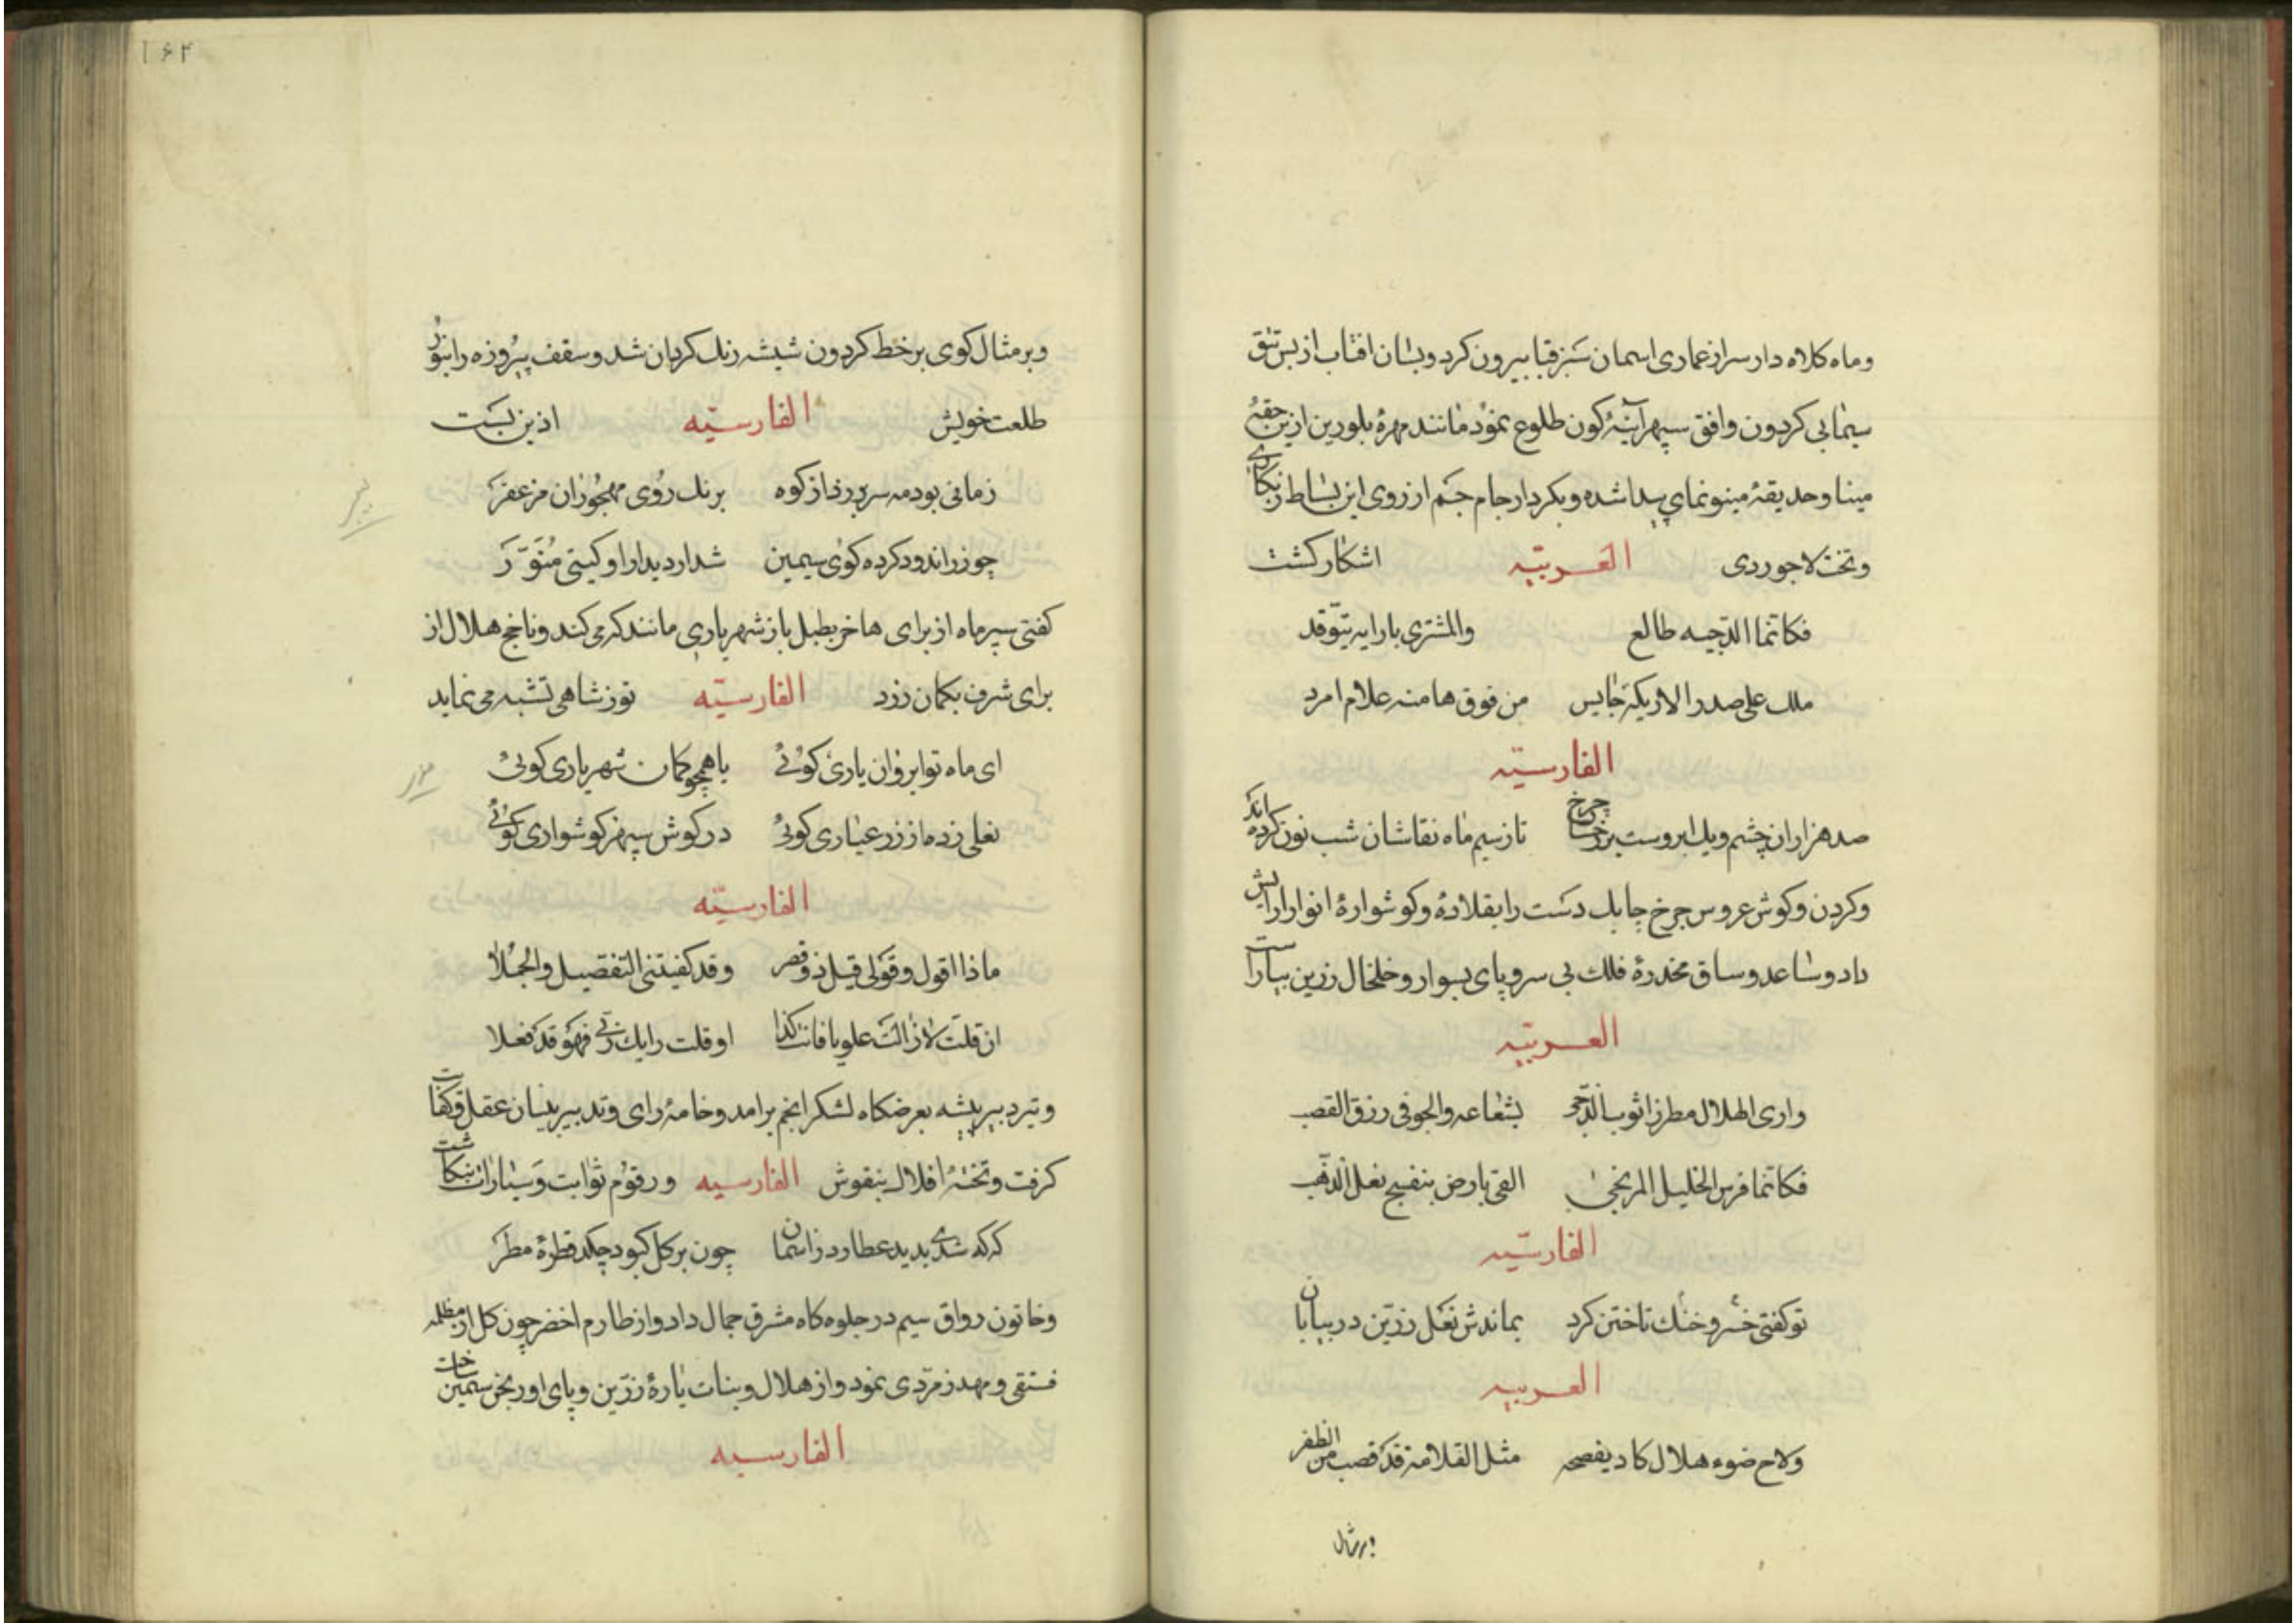 وماه کلاه دار سر از عماری اسمان سبز قبا بیرون کرد و بسان افتاب از بس تتق
سیمابی کردون وافق سپهر آینه کون طلوع نمود مانند مهرهٔ بلورین ازین حقهٔ
مینا وحدیقهٔ مینو نمای پیدا شده و بکردار جام جم از روی این بساط زنکاری
وتخت لاجوردی العربیّه اشکار کشت
فکانما الدجیه طالع والمشتری بارایه یتوقد
ملک علی صدر الاریکة جالیس من فوق هامنه علام امرد
الفارسیّه
صد هزاران چشم ویک ابروست بر رخسار چرخ تا ز سیم ماه نقاشان شب نون کرده اند
وکردن وکوش عروس چرخ چابک دست را بقلادهٔ وکوشوارهٔ انوار ارایش
داد وساعد وساق مخدرهٔ فلک بی سر وپای بسوار وخلخال زرین بیاراست
العربیّه
واری الهلال مطرزا ثوب الدجی بشعاعه والجو فی رزق القصب
فکانما فرس الخلیل المرتجی القی بارض بنفسج نعل الذهب
الفارسیّه
تو کفتی خسرو خنک تاختن کرد بماندش نعل زرّین در بیابان
العربیه
ولاح ضوء هلال کاد یفصحه مثل القلامة قد قصت من الظفر
وبرمثال
۱۶۴
وبرمثال کوی بر خط کردون شیشه رنک کردان شد وسقف پیروزه را بنور
طلعت خویش الفارسیّه اذین بست
زمانی بود مه سر بر زد از کوه برنک روی مهجوران مزعفر
چو زر اندود کرده کوی سیمین شد از دیدار او کیتی منوّر
کفتی سپر ماه از برای هاخر بطبل باز شهریاری مانند کرمی کند وناخج هلال از
برای شرف بکمان زرد الفارسیّه توزشاهی تشبه می نماید
ای ماه تو ابروان یاری کوئی یا همچو کمان شهریاری کوئی
نعلی زده از زر عیاری کوئی در کوش سپهر کوشواری کوئی
الفارسیّه
ماذا اقول وقولی فیک ذو قصر وقد کفیتنی التفصیل والجملا
ان قلت لا زالت علویا فانت کذا او قلت رایک ربی فهو قد فعلا
وتیر دبیر پیشه بعرضکاه لشکر انجم برامد وخامهٔ رای وتدبیر بنسان عقل وکفایت
کرفت وتختهٔ افلاک بنقوش الفارسیه ورقوم ثوابت وسیارات بنکاشت
که که شدی بدید عطارد ز اسمان چون بر کل کبود چکد قطرهٔ مطر
وخاتون رواق سیم در جلوه کاه مشرق جمال داد واز طارم اخضر چون کل از مظلهٔ
فستقی ومهد زمردی نمود واز هلال وبنات یارهٔ زرّین وپای اورنجن سیمین ساخت
الفارسیه